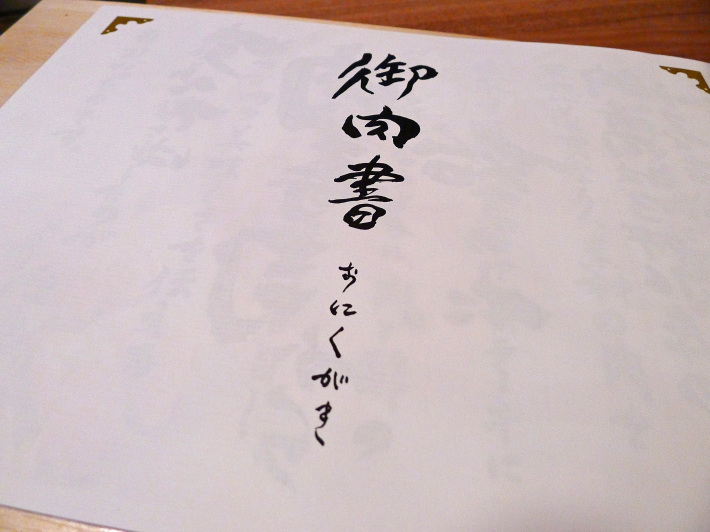 御肉書
おにくがき